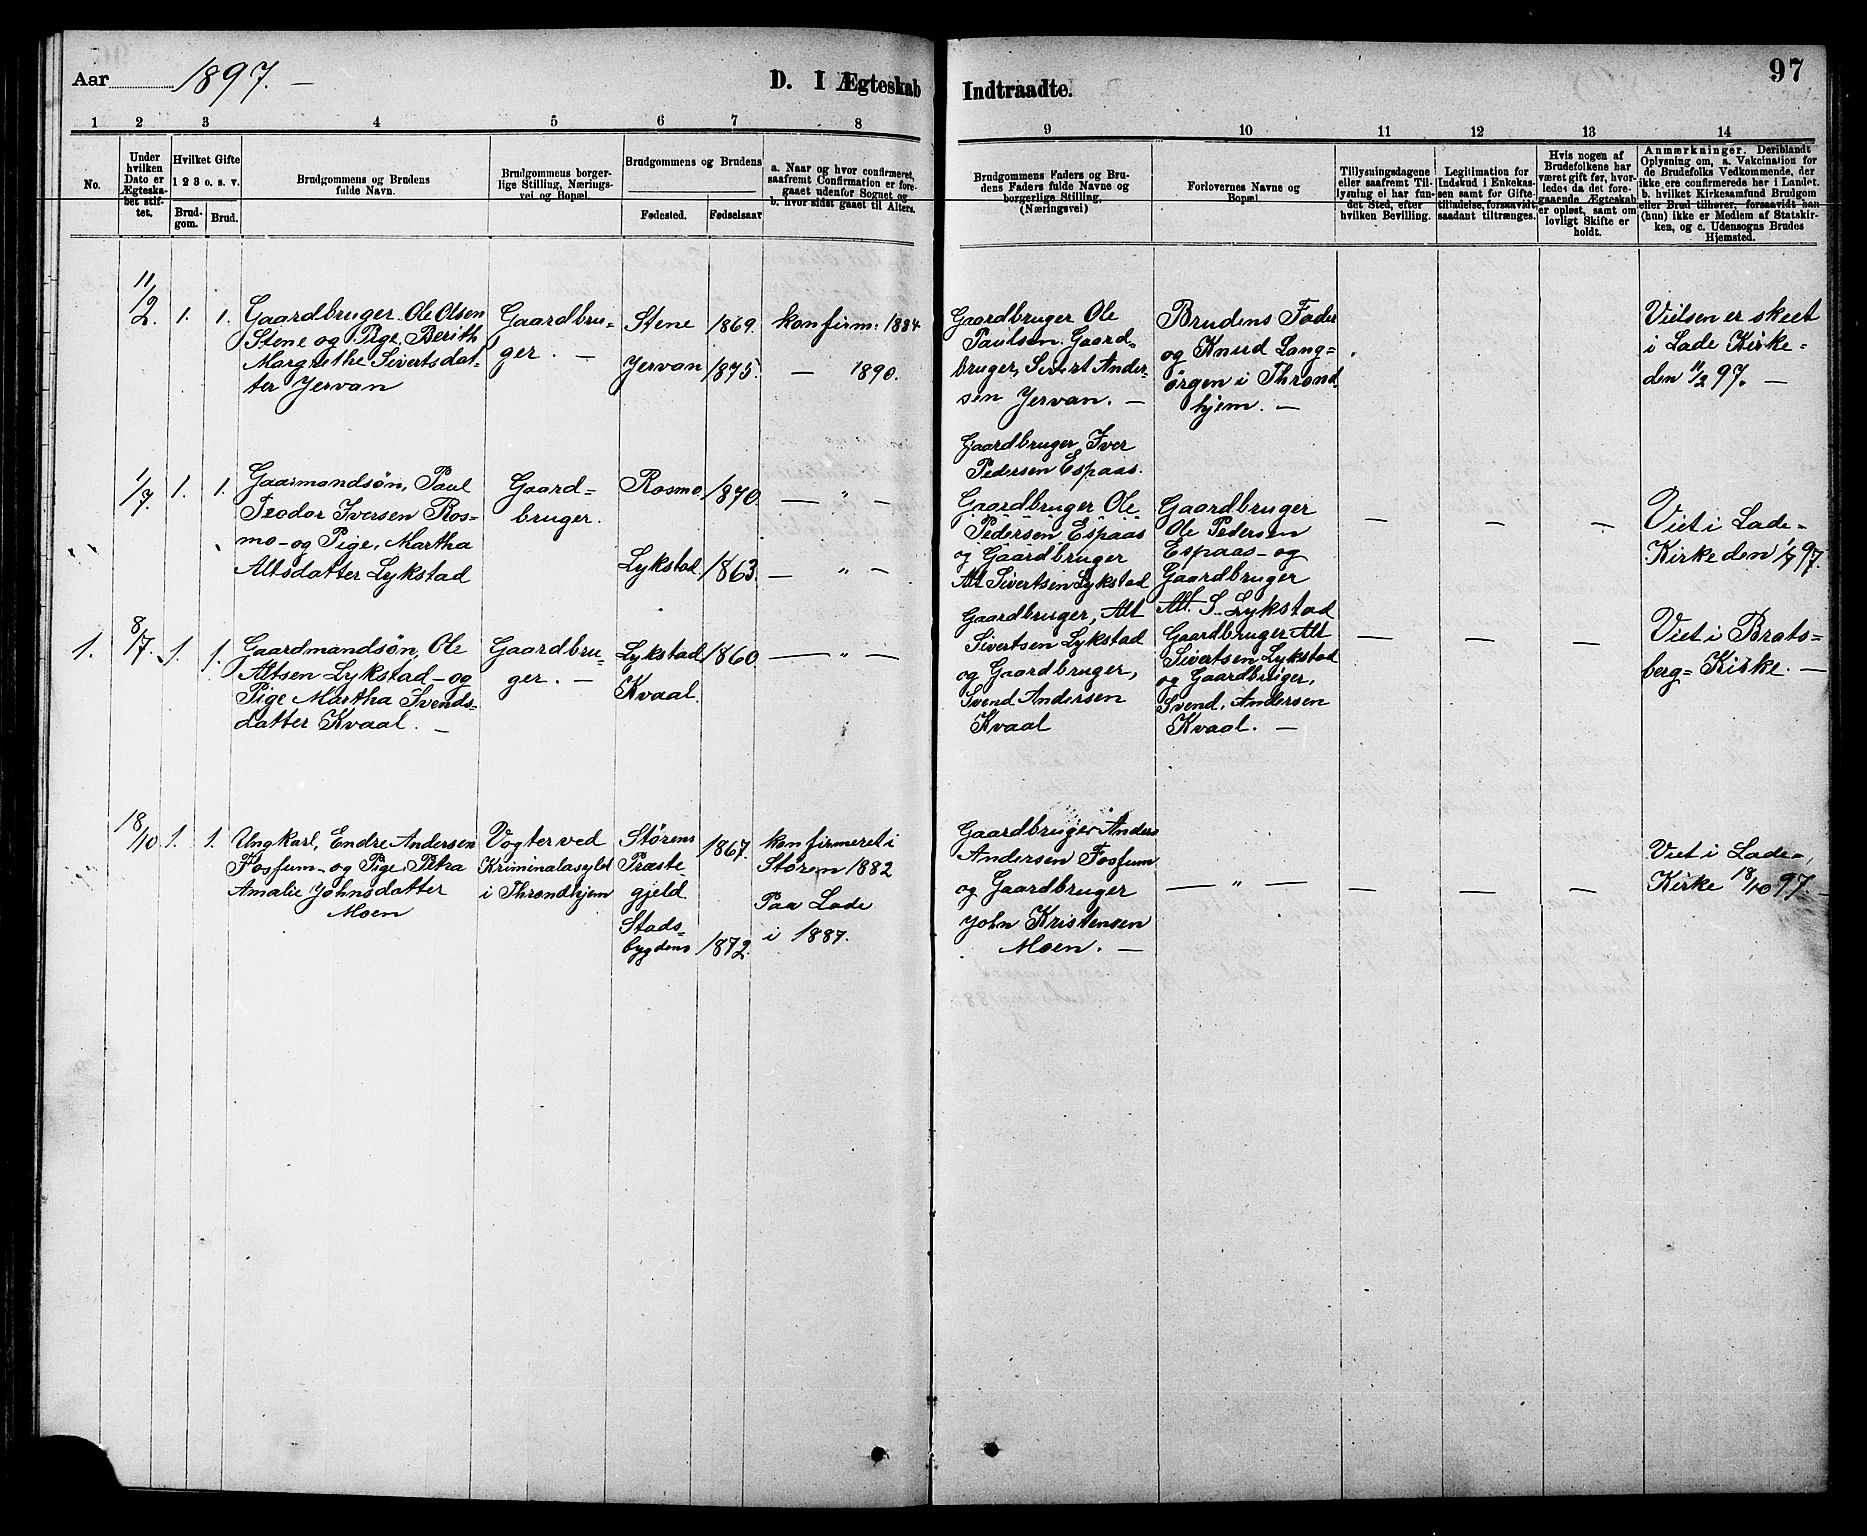 Aar 1897. –
D. I Ægteskab Indtraadte.
97
1 2 3 4 5 6 7 8 9 10 11 12 13 14
No.
Under
hvilken
Dato er
Ægteska-
bet stif-
tet.
Hvilket Gifte
1 2 3 o. s. v.
Brud-
gom.
Brud.
Brudgommens og Brudens
fulde Navn.
Brudgommens borger-
lige Stilling, Nærings-
vei og Bopæl.
Brudgommens og Brudens
Fødested.
Fødselsaar
a. Naar og hvor confirmeret,
saafremt Confirmation er fore-
gaaet udenfor Sognet og
b. hvor sidst gaaet til Alters.
Brudgommens Faders og Bru-
dens Faders fulde Navne og
borgerlige Stilling,
(Næringsvei)
Forlovernes Navne og
Bopæl.
Tillysningsdagene
eller saafremt Til-
lysning ei har fun-
det Sted, efter
hvilken Bevilling.
Legitimation for
Indskud i Enkekas-
sen samt for Gifte-
tilladelse, forsaavidt
saadant tiltrænges.
Hvis nogen af
Brudefolkene har
været gift før, hvor-
ledes da det fore-
gaaende Ægteskab
er opløst, samt om
lovligt Skifte er
holdt.
Anmærkninger. Deriblandt
Oplysning om, a. Vakcination for
de Brudefolks Vedkommende, der
ikke ere confirmerede her i Landet.
b. hvilket Kirkesamfund Brudgom
eller Brud tilhører, forsaavidt han
(hun) ikke er Medlem af Statskir-
ken, og c. Udensogns Brudes
Hjemsted.
11/2. 1. 1.
Gaardbruger Ole Olsen
Stene og Pige, Berith
Margrethe Sivertsdat-
ter Jervan
Gaardbru-
ger. –
Stene 1869. konfirm: 1884
Jervan 1875. – 1890.
Gaardbruger Ole
Paulsen. Gaard-
bruger, Sivert Ander-
sen Jervan. –
Brudens Fader
og Knud Lang-
örgen i Thrond
hjem. –
Vielsen er skeet
i Lade Kirke-
den 11/2 97. –
1/7. 1. 1.
Gaarmandsøn, Paul
Teodor Iversen Ros-
mo – og Pige, Martha
Altsdatter Lykstad
Gaard-
bruger.
Rosmo. 1870. – " –
Lykstad. 1863. – " –
Gaardbruger, Iver
Pedersen Espaas.
Gaardbruger Ole
Pedersen Espaas
og Gaardbruger
Alt Sivertsen Lykstad
Gaardbruger
Ole Pedersen
Espaas – og
Gaardbruger
Alt. S. Lykstad
– – –
Viet i Lade-
Kirke den 1/7 97.
1. 8/7. 1. 1.
Gaardmandsøn, Ole
Altsen Lykstad – og
Pige Martha Svends-
datter Kvaal. –
Gaardbru-
ger. –
Lykstad 1860. – " –
Kvaal.
Gaardbruger, Alt
Sivertsen Lykstad
og Gaardbruger,
Svend Andersen
Kvaal
Gaardbruger Alt
Sivertsen Lykstad
og Gaardbruger,
Svend, Andersen
Kvaal. –
– – –
Viet i Brats-
berg = Kirke. –
18/10 1. 1.
Ungkarl, Endre Andersen
Fosfum – og Pige, Petra
Amalie Johnsdatter
Moen
Vogter ved
Kriminalasylet
i Throndhjem
Størens
Præste-
gjeld.
Stads-
bygdens
1867.
1872.
konfirmeret i
Støren 1882
Paa Lade
i 1887.
Gaardbruger Anders
Andersen Fosfum
og Gaardbruger
John Kristensen
Moen. –
– " –
– – –
Viet i Lade-
Kirke 18/10 97. –